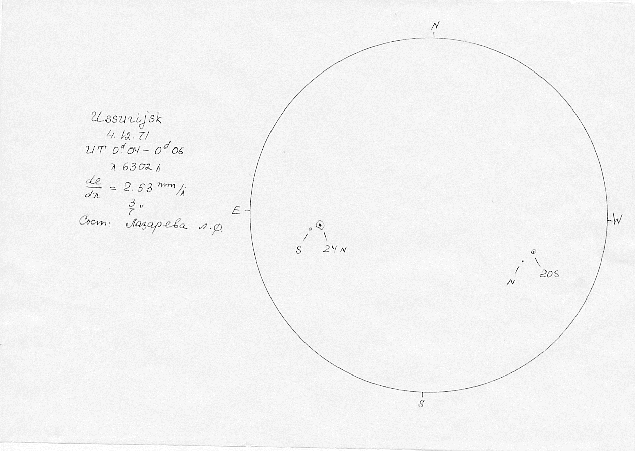 N
Ussurijsk
4.12.71
UT 0ᵈ04 – 0ᵈ06
λ 6302 Å
de/dλ = 2.53 mm/Å
E
W
Сост. Лазарева Л.Ф.
S
24N
N
20S
S